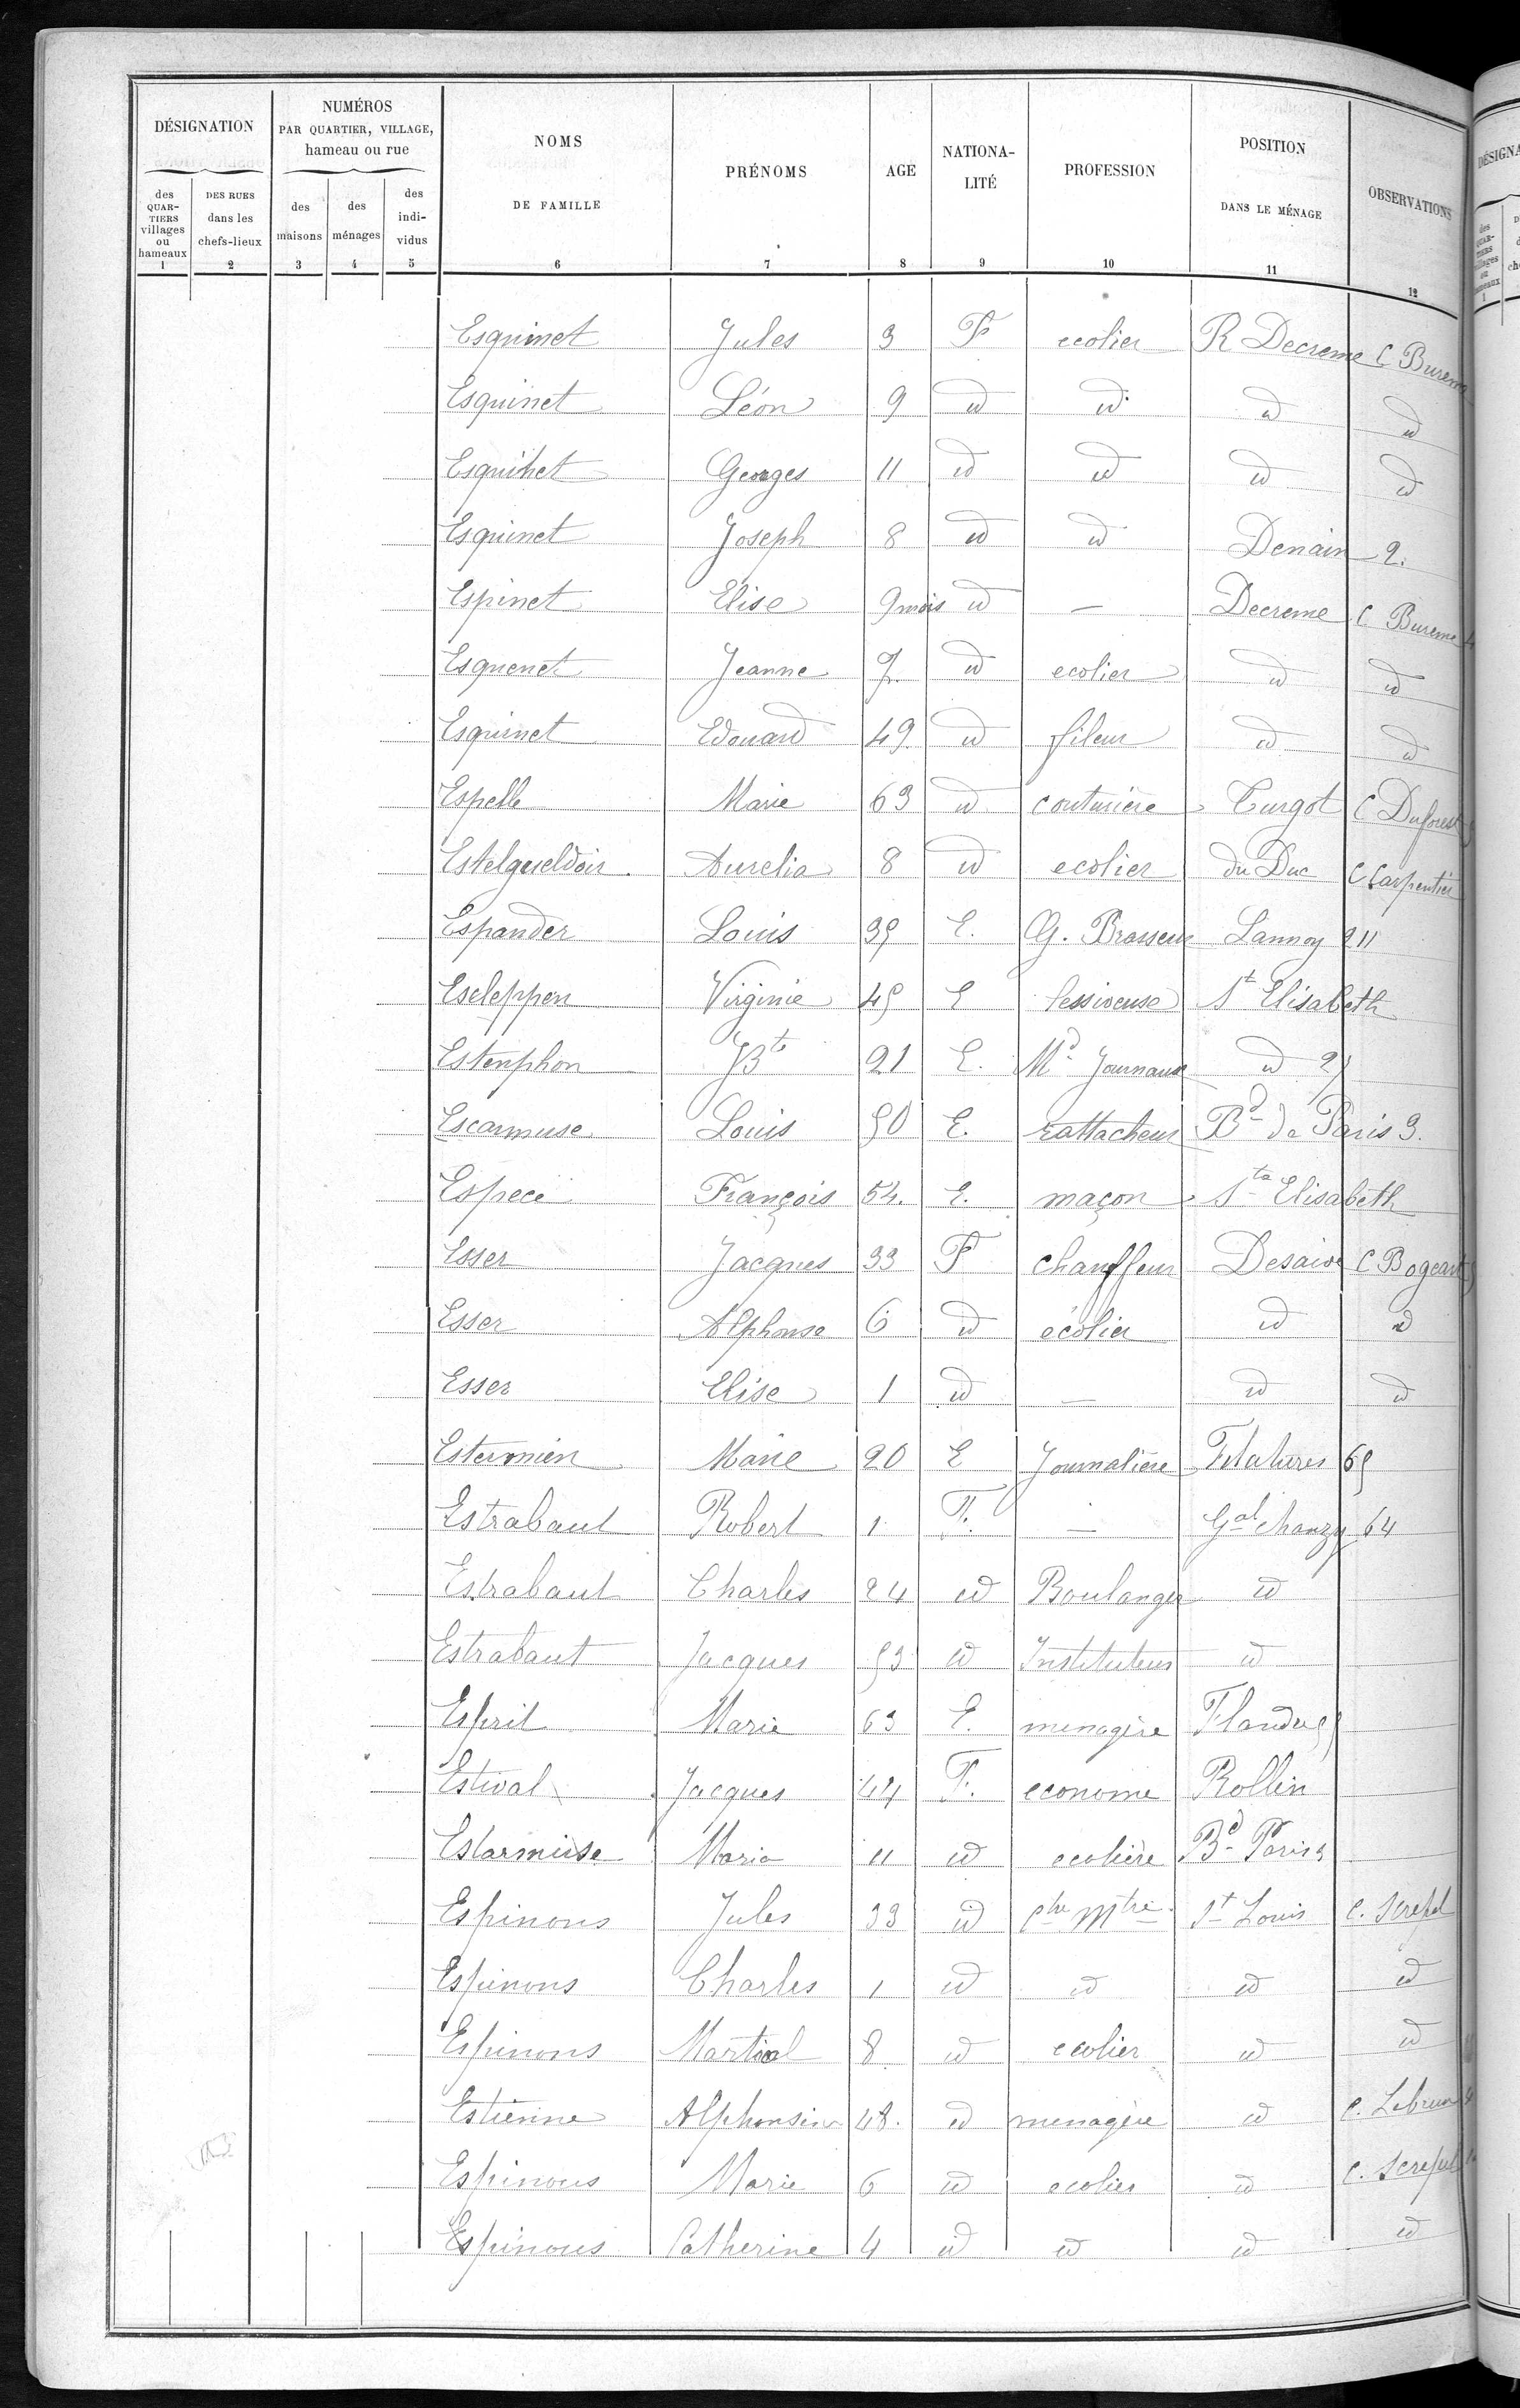 DÉSIGNATION NUMÉROS PAR QUARTIER, VILLAGE, hameau ou rue NOMS DE FAMILLE PRÉNOMS AGE NATIONA-LITÉ PROFESSION POSITION DANS LE MÉNAGE OBSERVATIONS
des QUAR-TIERS villages ou hameaux DES RUES dans les chefs-lieux des maisons des ménages des indi-vidus
1 2 3 4 5 6 7 8 9 10 11 12
Esquinet Jules 3 F ecolier R Decreme C Bureme
Esquinet Léon 9 id id id id
Esquinet Georges 11 id id id id
Esquinet Joseph 8 id id Denain 2.
Espinet Elise 9 mois id — Decreme C Bureme 4
Esquenet Jeanne 7. id ecolier id id
Esquinet Edouard 49. id fileur id id
Espelle Marie 63 id couturière Turgot C Duforest
Estelgueldoir. Aurelia 8 id ecolier du Duc C Carpentier
Espander Louis 35 E. G. Brasseur Lannoy 211
Escleppen Virginie 45 E lessiveuse St Elisabeth
Estenphon JBte 21 E. Md Journaux id
Escarmuse Louis 50 E. rattacheur Bd de Paris 3.
Especé François 54. E. maçon Ste Elisabeth
Esser Jacques 33 F chauffeur Desaive C Bogeart
Esser Alphonse 6 id écolier id id
Esser Elise 1 id — id id
Estermien Marie 20 E Journalière Filatures 65
Estrabaut Robert 1 F. — Gal Chanzy 64
Estrabaut Charles 24 id Boulanger id
Estrabaut Jacques 53 id Instituteur id
Esprit Marie 63 E. menagère
Estival Jacques 44 F. econome Rollin
Estarmuse Maria 11 id ecolière Bd Paris 3
Espinous Jules 33 id St Louis C. Screpel
Espinous Charles 1 id id id id
Espinous Martial 8. id ecolier id id
Estienne Alphonsine 48. id menagère id C. Lebrun 4
Espinous Marie 6 id ecolier id C. Screpel
Espinous Catherine 4 id id id id
DÉSIGNA
des QUAR-TIERS villages ou hameaux
1